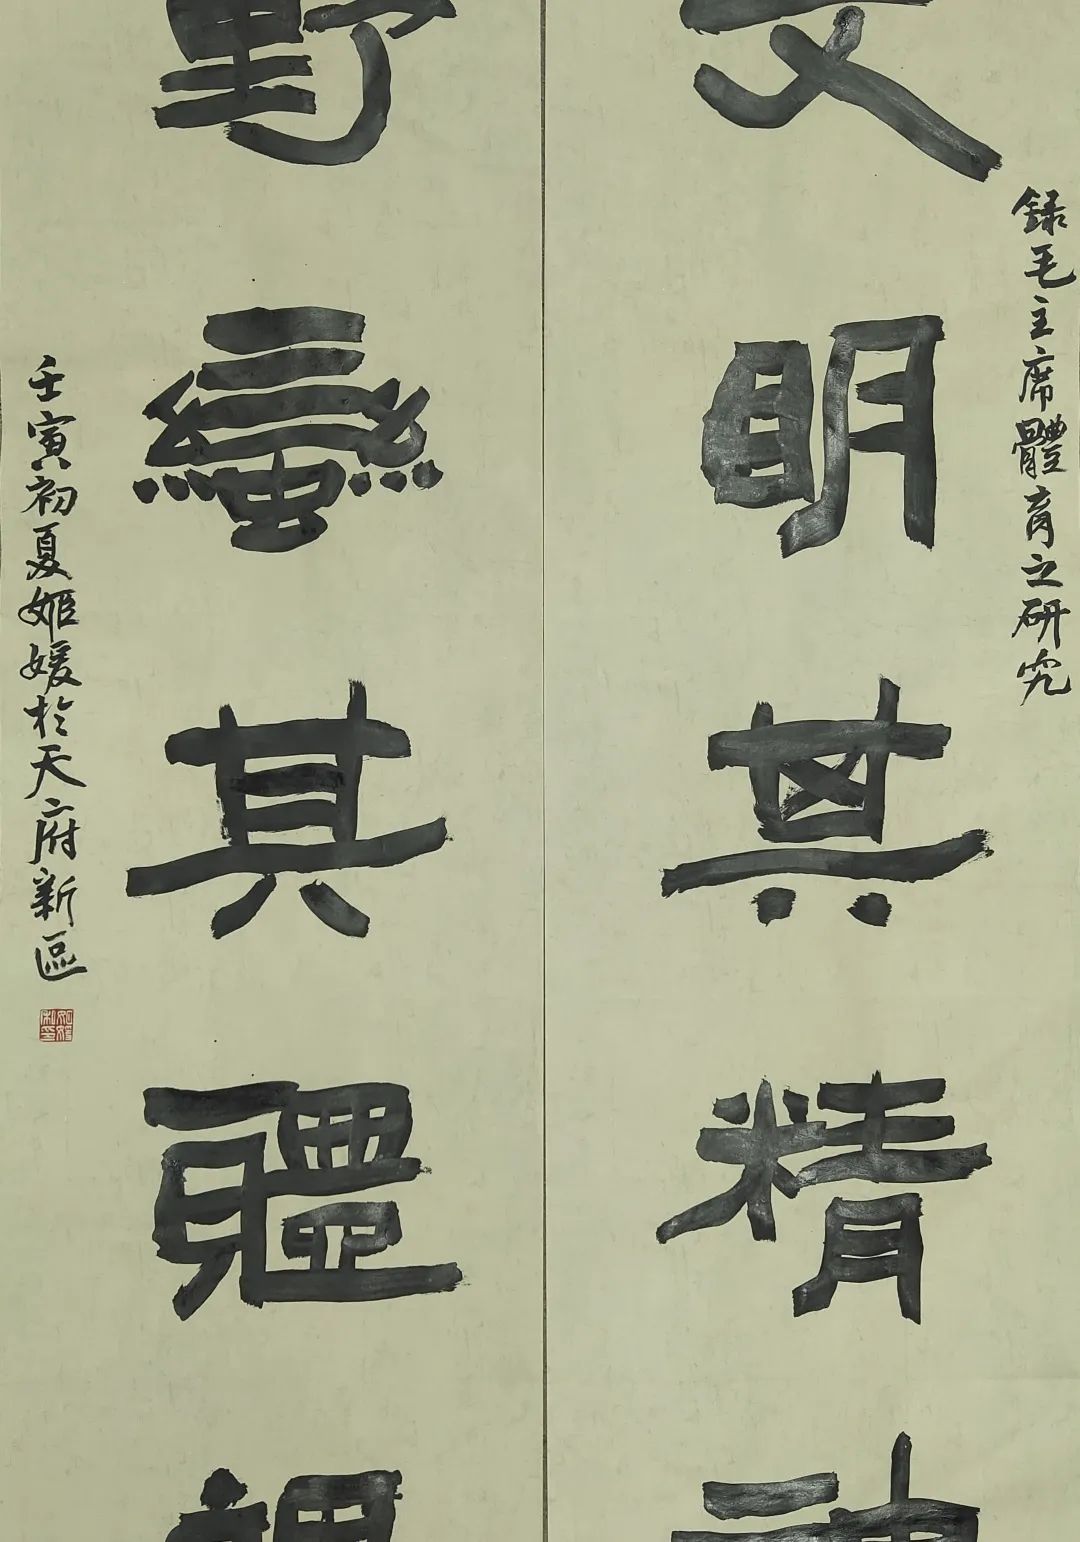 錄毛主席體育之研究
文明其精神
野蠻其體
壬寅初夏姬媛於天府新區